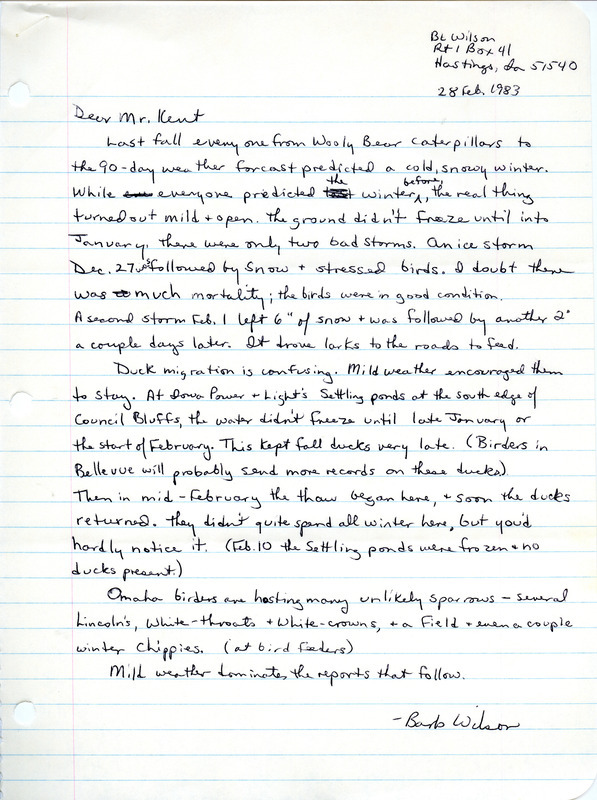 BL Wilson
Rt 1 Box 41
Hastings, Ia 51540
28 Feb. 1983
Dear Mr. Kent
Last fall everyone from Wooly Bear caterpillars to
the 90-day weather forcast predicted a cold, snowy winter.
While everyone predicted the winter before, the real thing
turned out mild + open. The ground didn't freeze until into
January. There were only two bad storms. An ice storm
Dec. 27 was followed by snow + stressed birds. I doubt there
was much mortality; the birds were in good condition.
A second storm Feb. 1 left 6" of snow + was followed by another 2"
a couple days later. It drove larks to the roads to feed.
Duck migration is confusing. Mild weather encouraged them
to stay. At Iowa Power + Light's Settling ponds at the south edge of
Council Bluffs, the water didn't freeze until late January or
the start of February. This kept fall ducks very late. (Birders in
Bellevue will probably send more records on these ducks.)
Then in mid-February the thaw began here, + soon the ducks
returned. They didn't quite spend all winter here, but you'd
hardly notice it. (Feb. 10 the Settling ponds were frozen + no
ducks present.)
Omaha birders are hosting many unlikely sparrows - several
Lincoln's, White-throats + White-crowns, + a Field + even a couple
winter Chippies. (at bird feeders)
Mild weather dominates the reports that follow.
- Barb Wilson